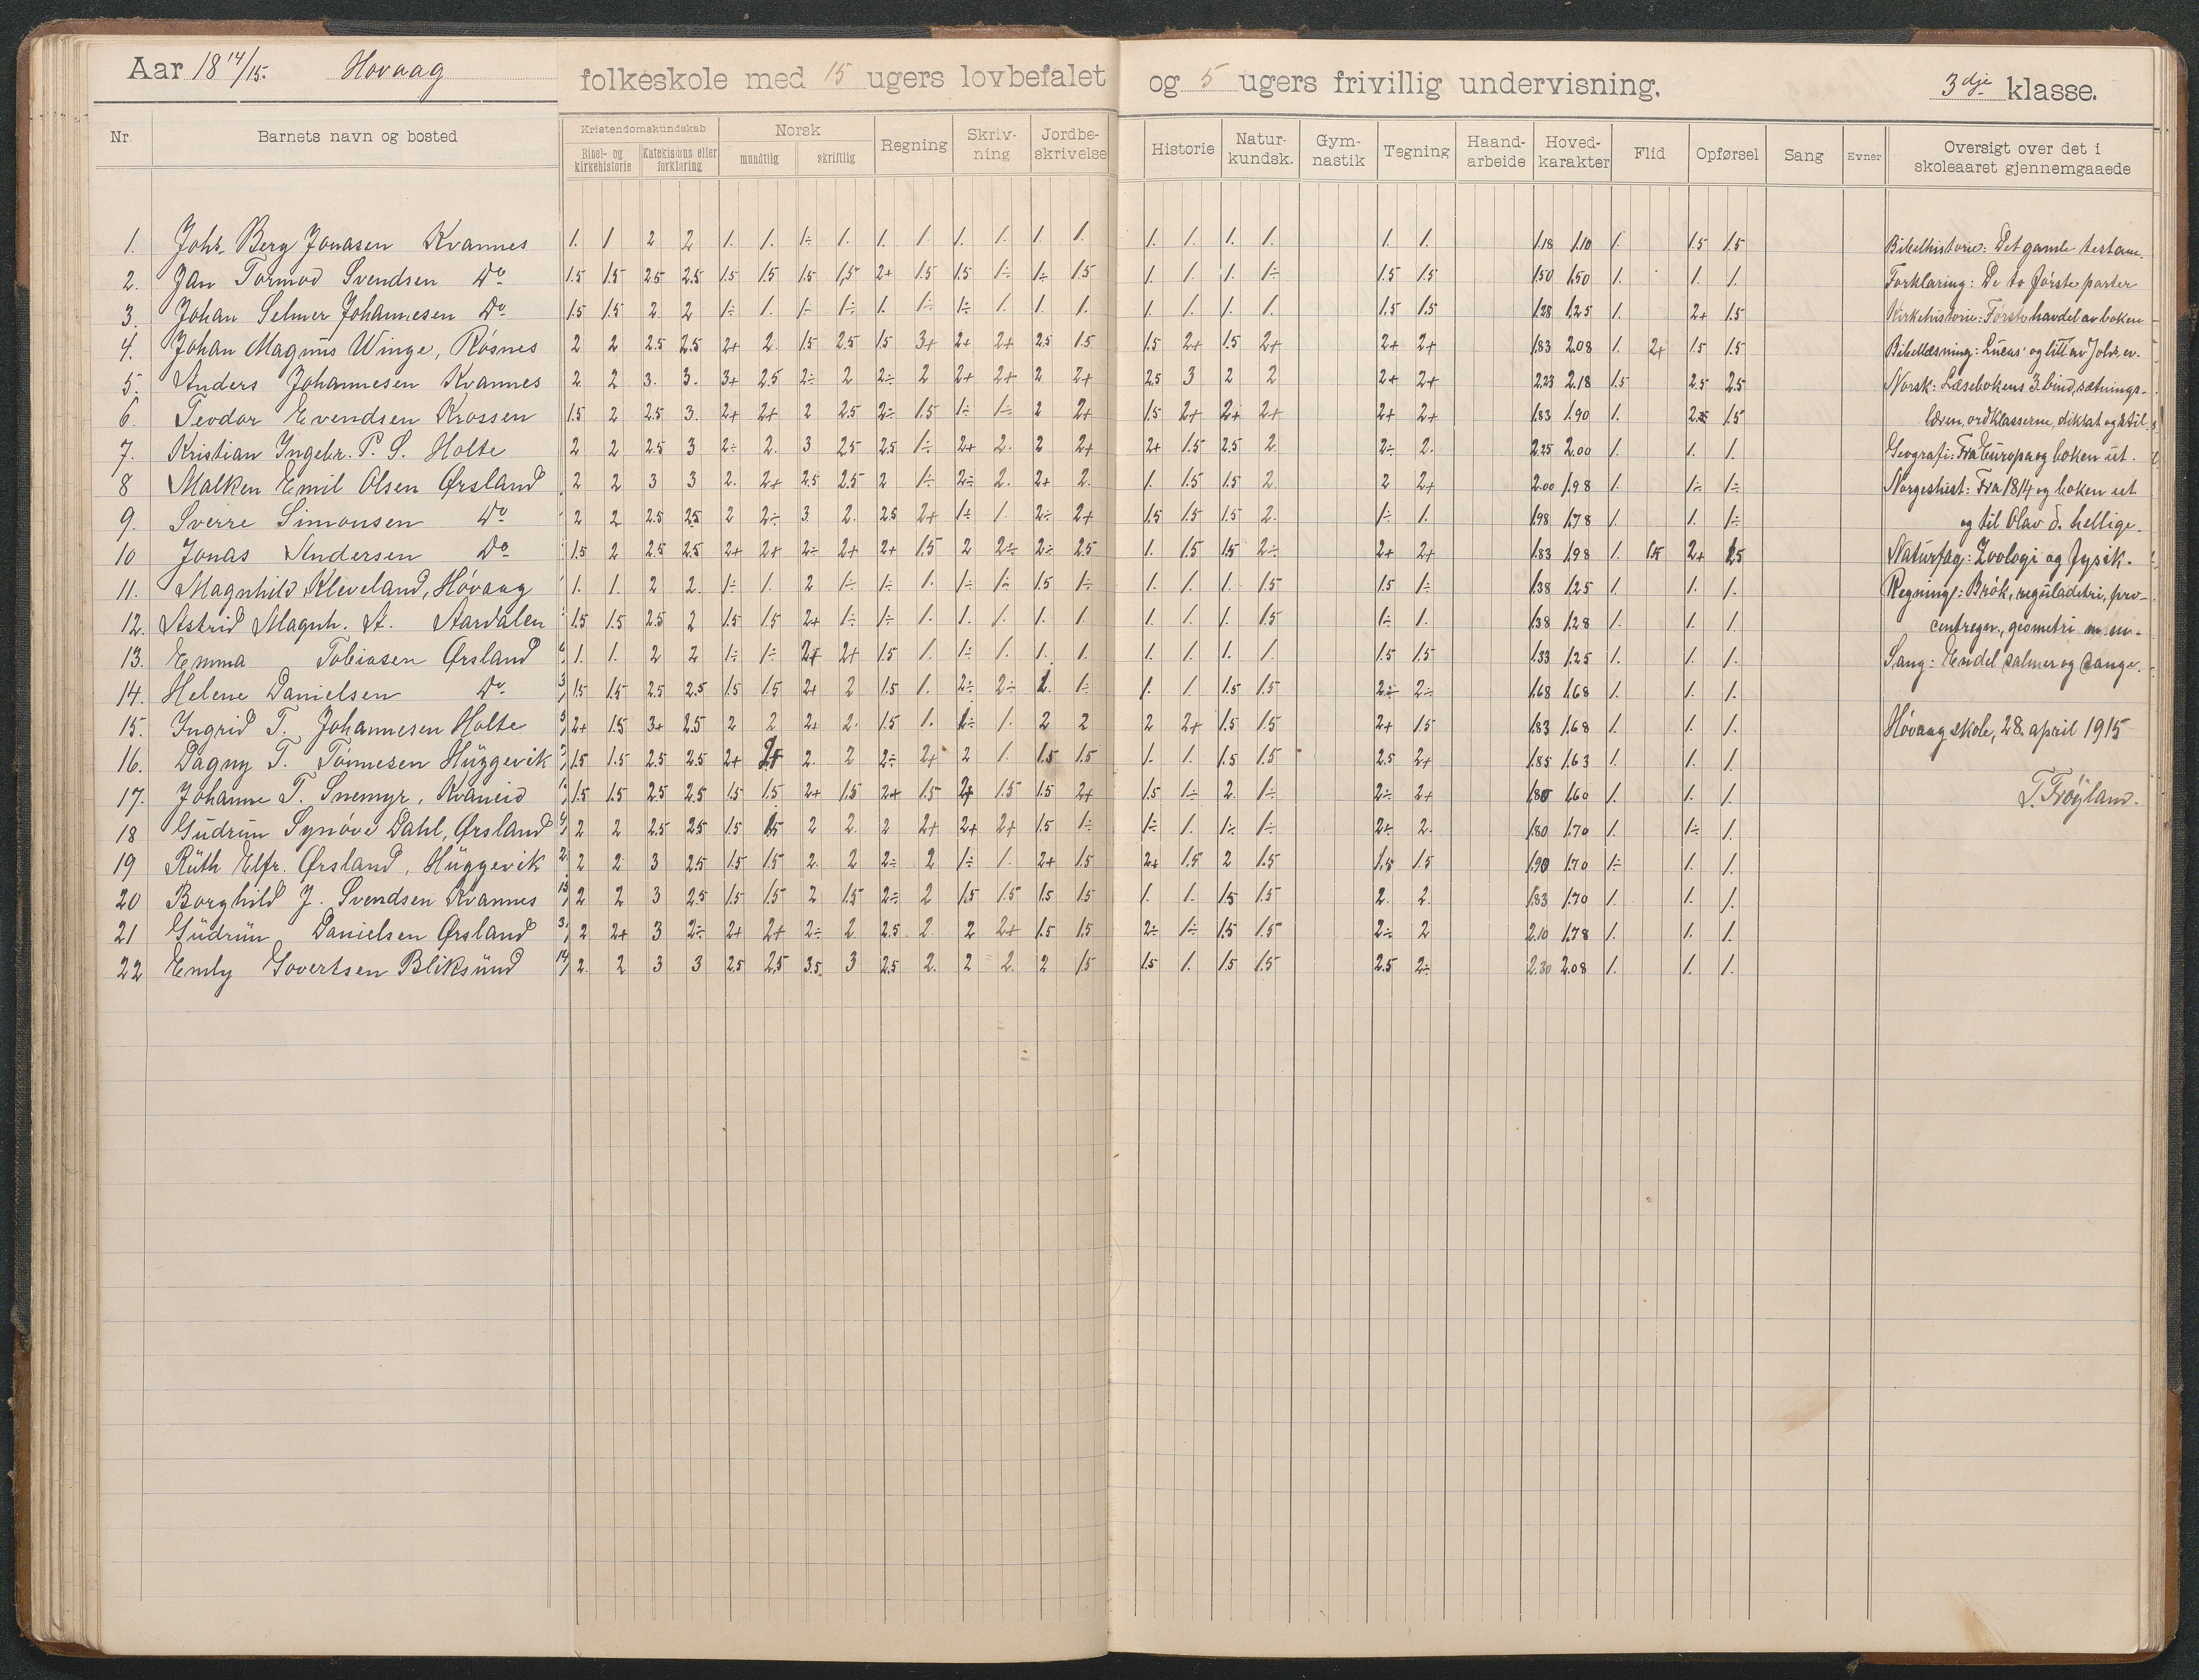 Aar 18 14/15. Hovaag folkeskole med 15 ugers lovbefalet og 5 ugers frivillig undervisning. 3dje klasse.
Nr. Barnets navn og bosted Kristendomskundskab Norsk Regning Skriv-ning Jordbe-skrivelse Historie Natur-kundsk. Gym-nastik Tegning Haand-arbeide Hoved-karakter Flid Opførsel Sang Evner Oversigt over det i skoleaaret gjennemgaaede
Bibel- og kirkehistorie Katekismus eller forklaring mundtlig skriftlig
1. Johs. Berg Jonasen Kvannes 1. 1 2 2 1. 1. 1÷ 1. 1. 1. 1. 1. 1. 1. 1. 1. 1. 1. 1. 1. 1.18 1.10 1. 1.5 1.5
2. Jan Tormod Svendsen Do 1.5 1.5 2.5 2.5 1.5 1.5 1.5 1,5 2+ 1.5 1.5 1÷ 1÷ 1.5 1. 1. 1. 1÷ 1.5 1.5 1.50 1.50 1. 1. 1.
3. Johan Selmer Johannesen Do 1.5 1.5 2. 2 1÷ 1. 1÷ 1÷ 1. 1÷ 1÷ 1. 1. 1. 1. 1. 1. 1. 1.5 1.5 1.28 1.25 1. 2+ 1.5
4. Johan Magnus Winge, Røsnes 2 2 2.5 2.5 2+ 2. 1.5 2.5 1.5 3+ 2+ 2+ 2.5 1.5 1.5 2+ 1.5 2+ 2+ 2+ 1.83 2.08 1. 2+ 1.5 1.5
5. Anders Johannesen Kvannes 2 2 3. 3. 3+ 2.5 2÷ 2 2÷ 2 2+ 2+ 2 2+ 2.5 3 2 2 2+ 2+ 2.23 2.18 1.5 2.5 2.5
6. Teodor Evendsen Krossen 1.5 2 2.5 3. 2+ 2+ 2 2.5 2÷ 1.5 1÷ 1÷ 2 2+ 1.5 2+ 2+ 2+ 2+ 2+ 1.83 1.90 1. 1.5
7. Kristian Ingebr. P. S. Holte 2 2 2.5 3 2÷ 2. 3 2.5 2.5 1÷ 2+ 2. 2 2+ 2+ 1.5 2.5 2. 2÷ 2. 2.25 2.00 1. 1. 1.
8 Malken Emil Olsen Ørsland 2 2 3 3 2. 2+ 2.5 2.5 2 1÷ 2÷ 2. 2+ 2. 1. 1.5 1.5 2. 2 2+ 2.00 1.98 1. 1÷ 1÷
9. Sverre Simonsen Do 2 2 2.5 2.5 2 2÷ 3. 2. 2.5 2+ 1÷ 1. 2÷ 2+ 1.5 1.5 1.5 2. 1÷ 1. 1.98 1.78 1. 1. 1÷
10 Jonas Andersen Do 1.5 2 2.5 2.5 2+ 2+ 2÷ 2+ 2+ 1.5 2 2÷ 2÷ 2.5 1. 1.5 1.5 2÷ 2+ 2+ 1.83 1.98 1. 1.5 2+ 2.5
11. Magnhild Kleveland, Høvaag 1. 1. 2 2. 1÷ 1. 2 1÷ 1÷ 1. 1÷ 1÷ 1.5 1÷ 1. 1. 1. 1.5 1.5 1÷ 1.38 1.25 1. 1. 1.
12. Astrid Magnh. A. Aardalen 1.5 1.5 2.5 2 1.5 1.5 2+ 1÷ 1÷ 1. 1. 1. 1. 1. 1. 1. 1. 1.5 1÷ 1. 1.38 1.28 1. 1. 1.
13. Emma Tobiasen Ørsland 1. 1. 2 2 1÷ 1÷ 2+ 2+ 1.5 1. 1÷ 1. 1. 1. 1. 1. 1. 1. 1.5 1.5 1.33 1.25 1. 1. 1.
14. Helene Danielsen Do 1.5 1.5 2.5 2.5 1.5 1.5 2+ 2 1.5 1. 2÷ 2÷ 1. 1÷ 1. 1. 1.5 1.5 2÷ 2÷ 1.68 1.68 1. 1. 1.
15. Ingrid T. Johannesen Holte 2+ 1.5 3+ 2.5 2 2 2+ 2. 1.5 1. 1÷ 1. 2 2 2 2+ 1.5 1.5 2+ 1.5 1.83 1.68 1. 1. 1.
16. Dagny T. Tønnesen Huggevik 1.5 1.5 2.5 2.5 2+ 2+ 2. 2 2÷ 2+ 2 1. 1.5 1.5 1. 1. 1.5 1.5 2.5 2+ 1.85 1.63 1. 1. 1.
17. Johanne T. Snemyr, Kvaneid 1.5 1.5 2.5 2.5 1.5 1.5 2+ 1.5 2+ 1.5 2+ 1.5 1.5 2+ 1.5 1÷ 2. 1÷ 2÷ 2+ 1.80 1.60 1. 1. 1.
18 Gudrun Synøve Dahl, Ørsland 2 2 2.5 2.5 1.5 1.5 2 2. 2 2+ 2+ 2+ 1.5 1÷ 1÷ 1. 1÷ 1÷ 2÷ 2. 1.80 1.70 1. 1÷ 1.
19 Ruth Elfr. Ørsland, Huggevik 2 2 3 2.5 1.5 1.5 2. 2 2÷ 2 1÷ 1. 2+ 1.5 2+ 1.5 2 1.5 1.5 1.5 1.90 1.70 1÷ 1. 1.
20 Borghild J. Svendsen Kvannes 2 2 3 2.5 1.5 1.5 2 1.5 2÷ 2 1.5 1.5 1.5 1.5 1. 1. 1.5 1.5 2. 2. 1.83 1.70 1. 1. 1.
21 Gudrun Danielsen Ørsland 2 2+ 3 2÷ 2+ 2+ 2÷ 2 2.5 2 2 2+ 1.5 1.5 2÷ 1÷ 1.5 1.5 2÷ 2 2.10 1.78 1. 1. 1.
22 Emly Govertsen Bliksund 2. 2 3 3 2.5 2.5 3.5 3 2.5 2. 2 2. 2 1.5 1.5 1. 1.5 1.5 2.5 2÷ 2.30 2.08 1. 1. 1.
Bibelhistorie: Det gamle testam.
Forklaring: De to første parter
Kirkehistorie: Første havdel av boken
Bibellæsning: Lucas og litt av Johs. ev.
Norsk: Læsebokens 3. bind, sætnings-
læren, ordklasserne, diktat og stil.
Geografi: Fra Europa og boken ut.
Norgeshist: Fra 1814 og boken ut
og til Olav d. hellige.
Naturfag: Zoologi og fysik.
Regning: Brøk, reguladetri, pro-
centregn., geometri m. m.
Sang: Endel salmer og sange.
Høvaag skole, 28. april 1915
T. Frøyland.